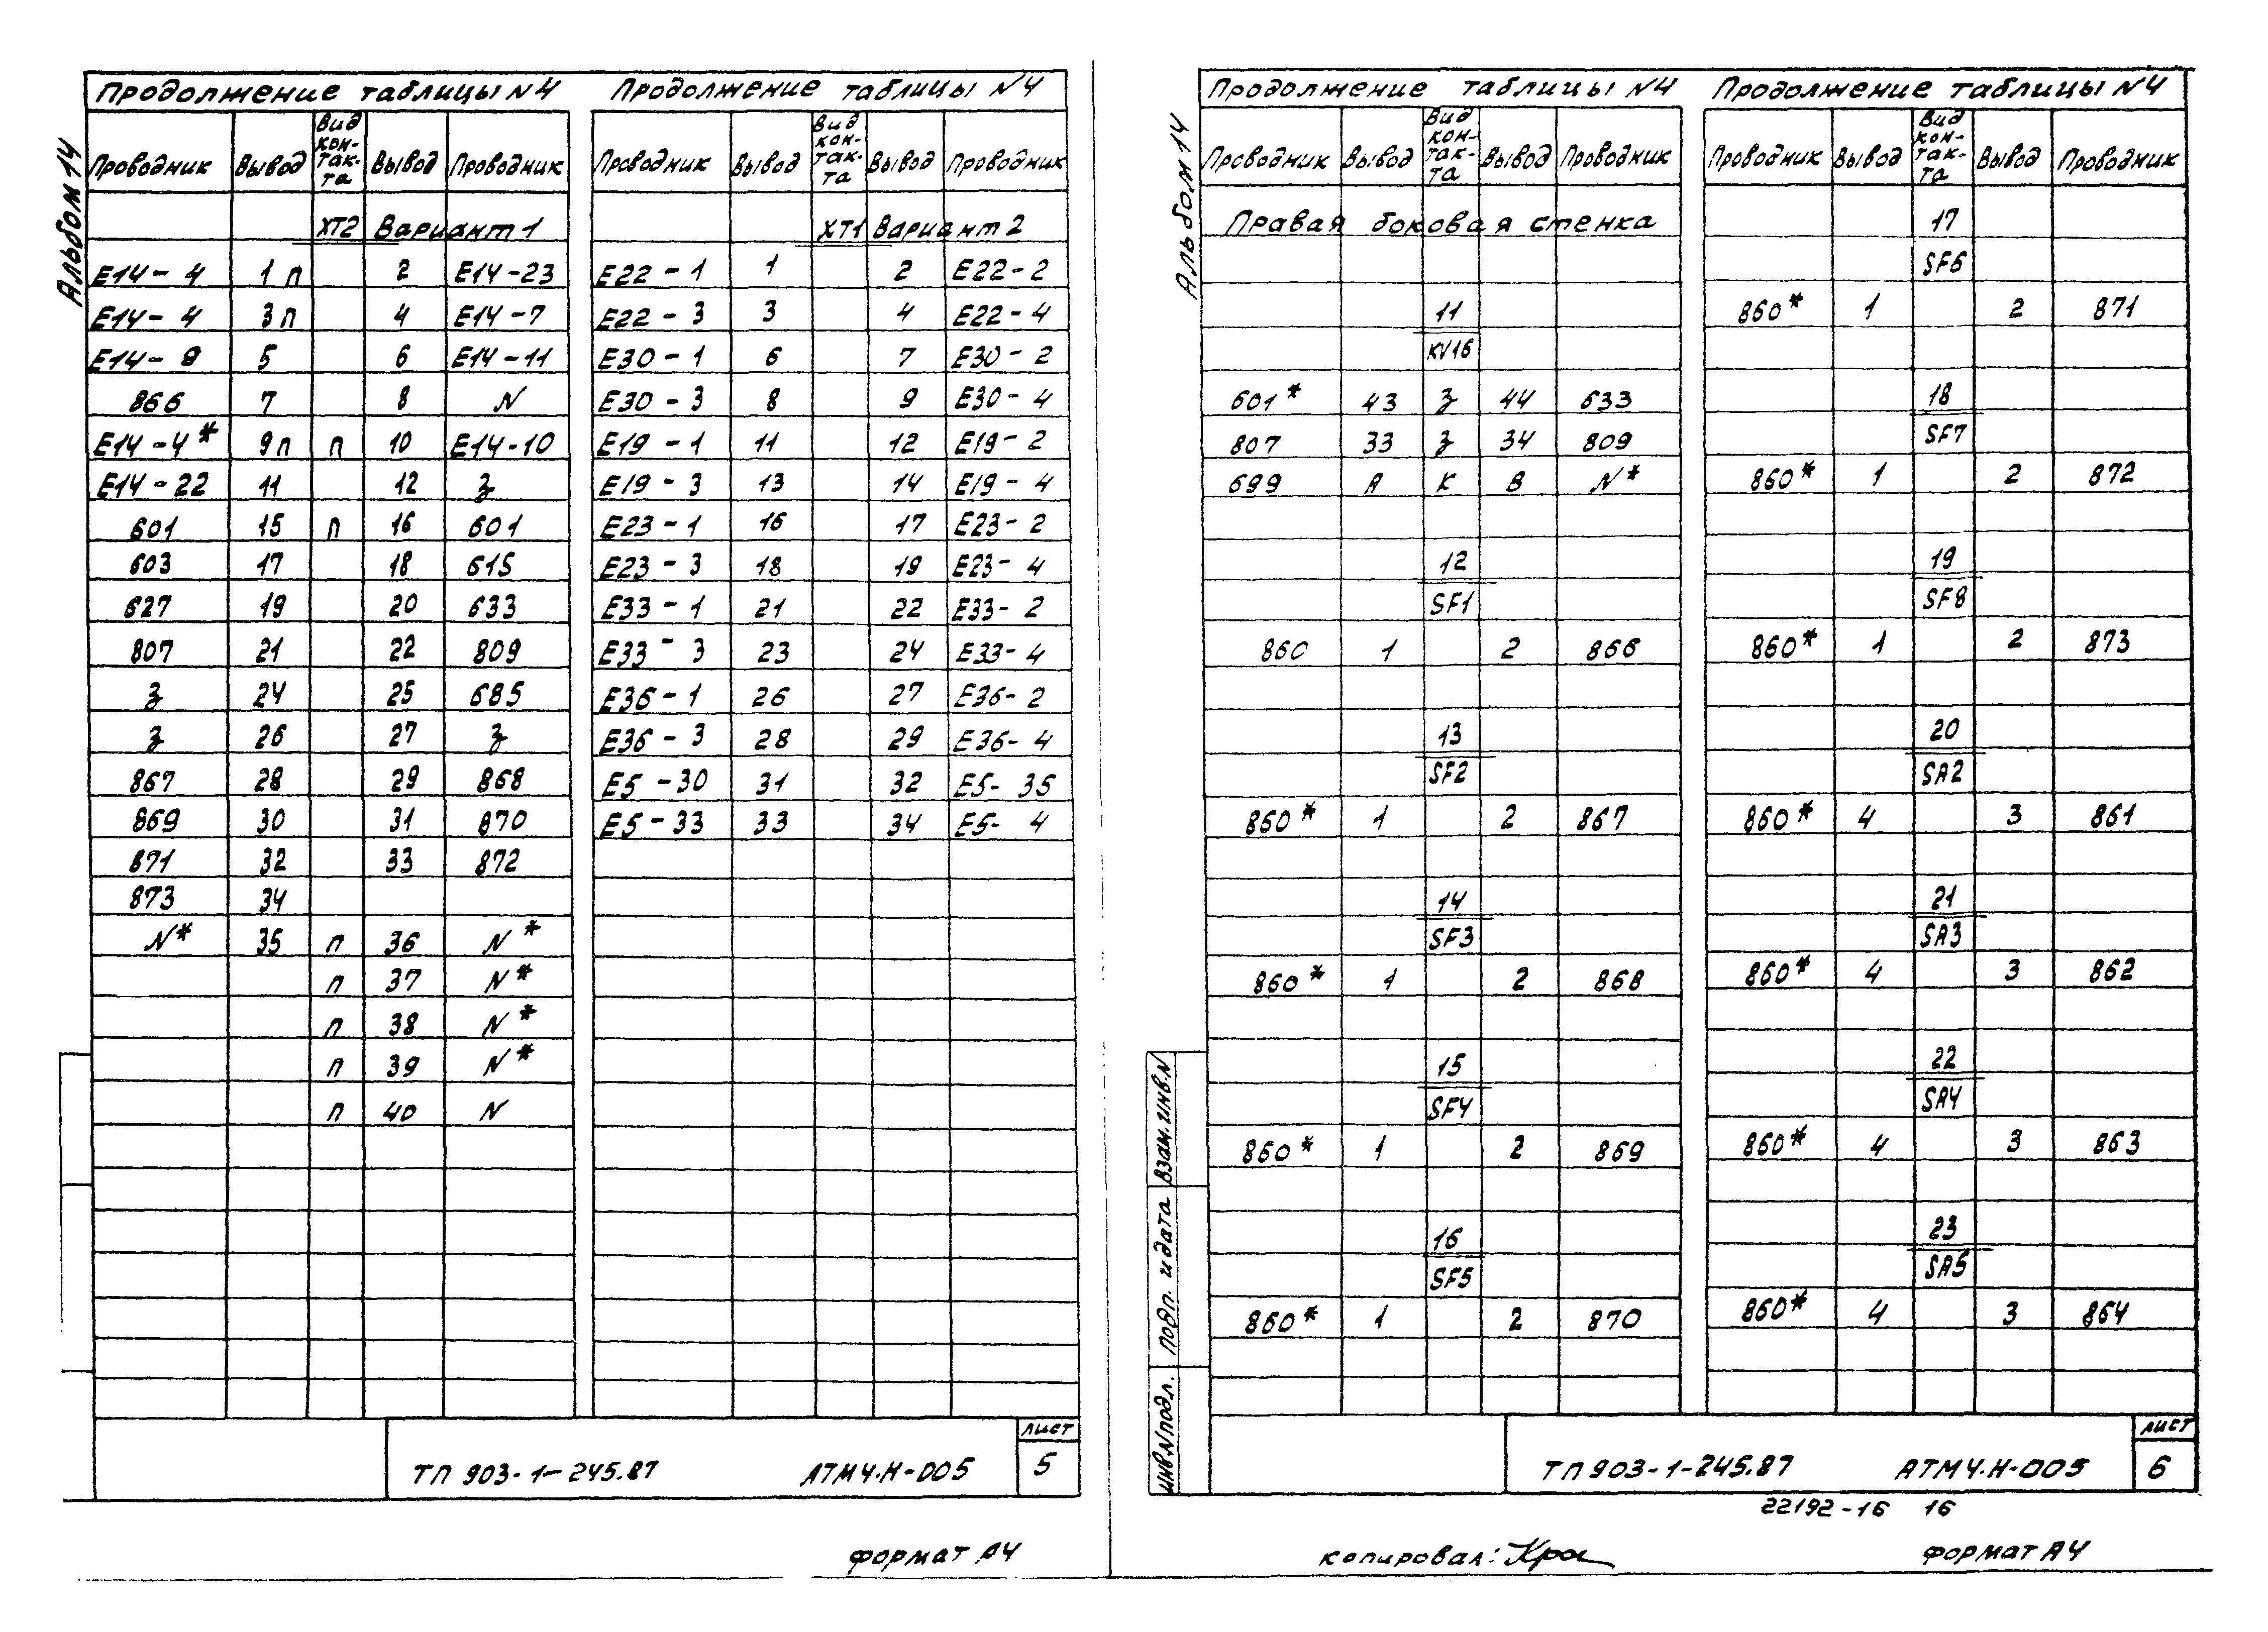 Альбом 14
Продолжение таблицы N4
Проводник Вывод Вид кон-так-та Вывод Проводник
ХТ2 Вариант 1
Е14-4 1п 2 Е14-23
Е14-4 3п 4 Е14-7
Е14-9 5 6 Е14-11
866 7 8 N
Е14-4* 9п п 10 Е14-10
Е14-22 11 12 З
601 15 п 16 601
603 17 18 615
627 19 20 633
807 21 22 809
З 24 25 685
З 26 27 З
867 28 29 868
869 30 31 870
871 32 33 872
873 34
N* 35 п 36 N*
п 37 N*
п 38 N*
п 39 N*
п 40 N
Продолжение таблицы N4
Проводник Вывод Вид кон-так-та Вывод Проводник
ХТ1 Вариант 2
Е22-1 1 2 Е22-2
Е22-3 3 4 Е22-4
Е30-1 6 7 Е30-2
Е30-3 8 9 Е30-4
Е19-1 11 12 Е19-2
Е19-3 13 14 Е19-4
Е23-1 16 17 Е23-2
Е23-3 18 19 Е23-4
Е33-1 21 22 Е33-2
Е33-3 23 24 Е33-4
Е36-1 26 27 Е36-2
Е36-3 28 29 Е36-4
Е5-30 31 32 Е5-35
Е5-33 33 34 Е5-4
ТП 903-1-245.87 АТМ4.Н-005
Лист
5
формат А4
Альбом 14
Продолжение таблицы N4
Проводник Вывод Вид кон-так-та Вывод Проводник
Правая боковая стенка
11
KV16
601* 43 З 44 633
807 33 З 34 809
699 А К В N*
12
SF1
860 1 2 866
13
SF2
860* 1 2 867
14
SF3
860* 1 2 868
15
SF4
860* 1 2 869
16
SF5
860* 1 2 870
Продолжение таблицы N4
Проводник Вывод Вид кон-так-та Вывод Проводник
17
SF6
860* 1 2 871
18
SF7
860* 1 2 872
19
SF8
860* 1 2 873
20
SA2
860* 4 3 861
21
SA3
860* 4 3 862
22
SA4
860* 4 3 863
23
SA5
860* 4 3 864
Взам. инв. N
Подп. и дата
Инв. N подл.
ТП 903-1-245.87 АТМ4.Н-005
Лист
6
22192-16 16
копировал: Кра
формат А4